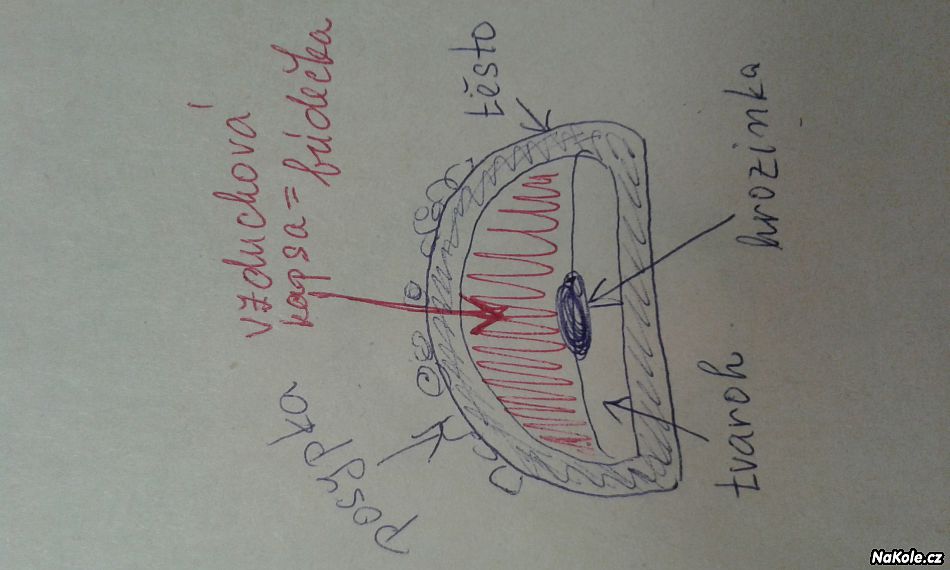 vzduchová
kapsa = búdečka
těsto
posypka
hrozinka
tvaroh
NaKole.cz